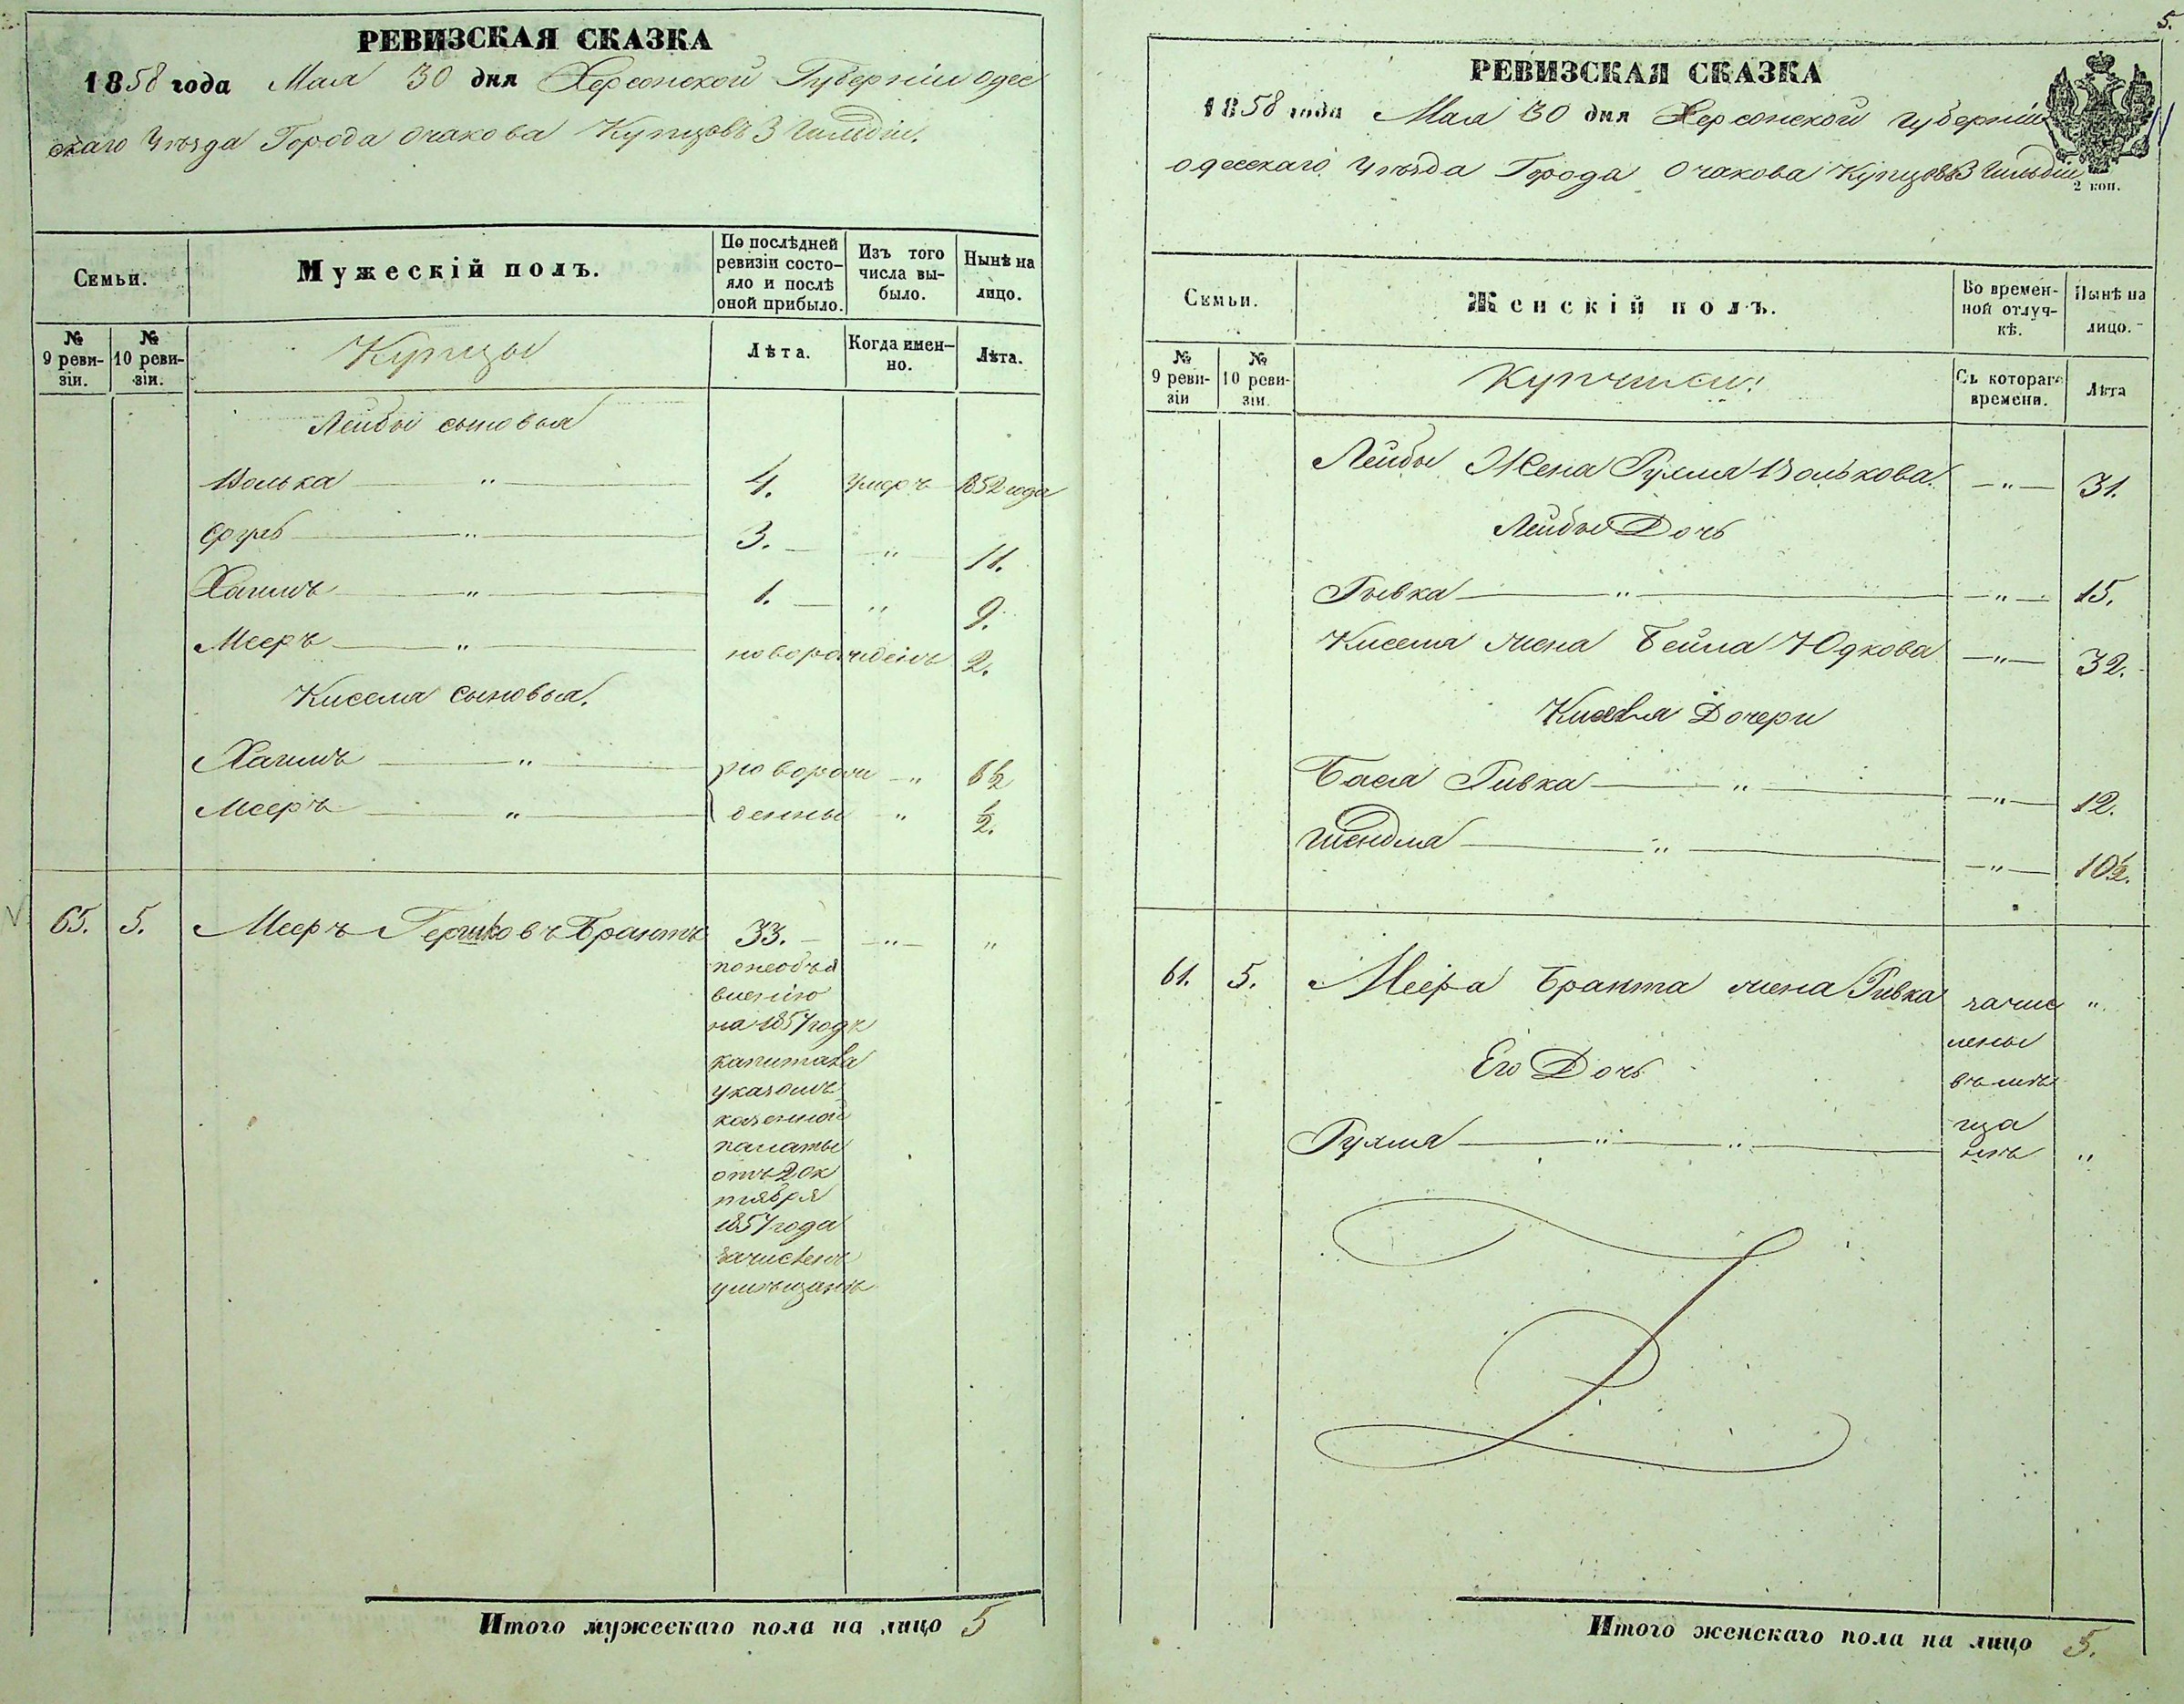 РЕВИЗСКАЯ СКАЗКА
1858 года Мая 30 дня Херсонской Губерніи одес
скаго Уѣзда Города Очакова Купцовъ 3 Гильдіи.
Семьи.
Мужескій полъ.
По послѣдней ревизіи состояло и послѣ оной прибыло.
Изъ того числа выбыло.
Нынѣ на лицо.
№ 9 ревизіи.
№ 10 ревизіи.
Купцы
Лѣта.
Когда именно.
Лѣта.
Лейбы сыновья
Волька — " — 4. умеръ 1852 года
Сруль — " — 3. — " — 11.
Хаимъ — " — 1. — " 9.
Мееръ — " — новорожденъ 2.
Кисела сыновья.
Хаимъ — " — новорож — " 6½
Мееръ — " — денны " ½.
65. 5. Мееръ Гершковъ Брантъ 33. — " — "
по необъя
вленію
на 1857 годъ
капитала
указомъ
казенной
палаты
отъ 2 ок
тября
1857 года
зачисленъ
у мѣщанъ
Итого мужескаго пола на лицо 5
5.
РЕВИЗСКАЯ СКАЗКА
1858 года Мая 30 дня Херсонской Губерніи
одесскаго Уѣзда Города Очакова Купцовъ 3 Гильдіи
2 коп.
Семьи.
Женскій полъ.
Во временной отлучкѣ.
Нынѣ на лицо.
№ 9 ревизіи
№ 10 ревизіи.
Купчихи:
Съ котораго времени.
Лѣта
Лейбы Жена Гулма Волькова. — " — 31.
Лейбы Дочь
Рывка — " — — " — 15.
Кисела жена Бейла Юдкова — " — 32.
Кисела Дочери
Бася Ривка — " — — " — 12.
Шендля — " — — " — 10½.
61. 5. Меера Бранта жена Ривка зачис "
лены
Его Дочь
въ мѣ
ща
Гулма — " — " — нъ "
Итого женскаго пола на лицо 5.